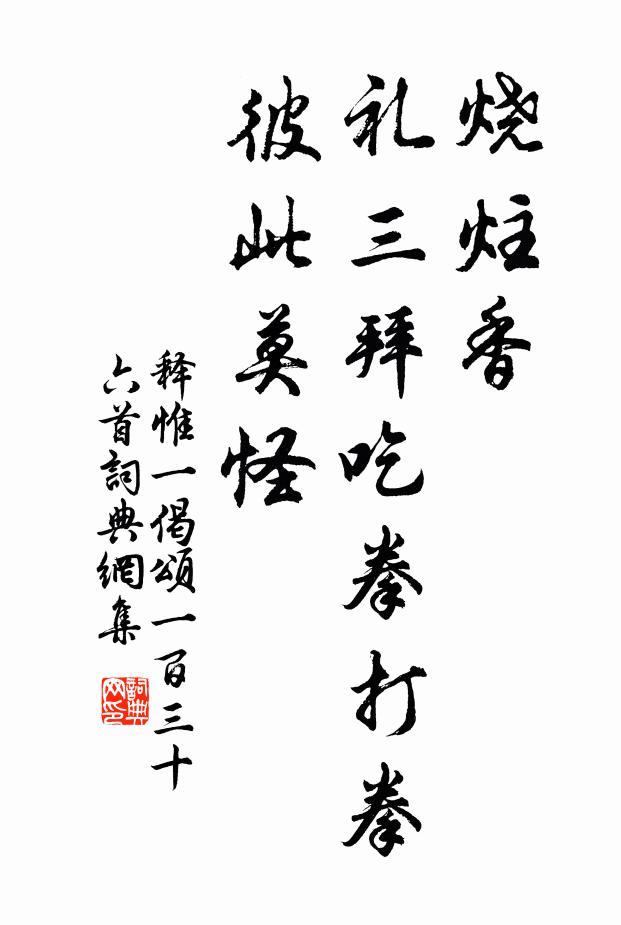 烧炷香
礼三拜吃拳打拳
彼此莫怪
释惟一偈頌一百三十
六首詞典網集
詞典网印